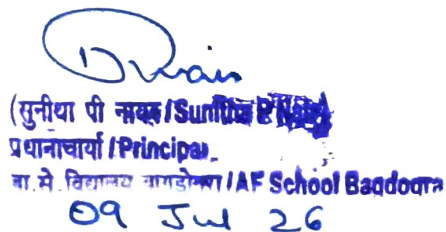 (सुनीथा पी नायर/Sunitha P Nair)
प्रधानाचार्या/Principal
वा.से. विद्यालय बागडोगरा/AF School Bagdogra
09 Jul 26